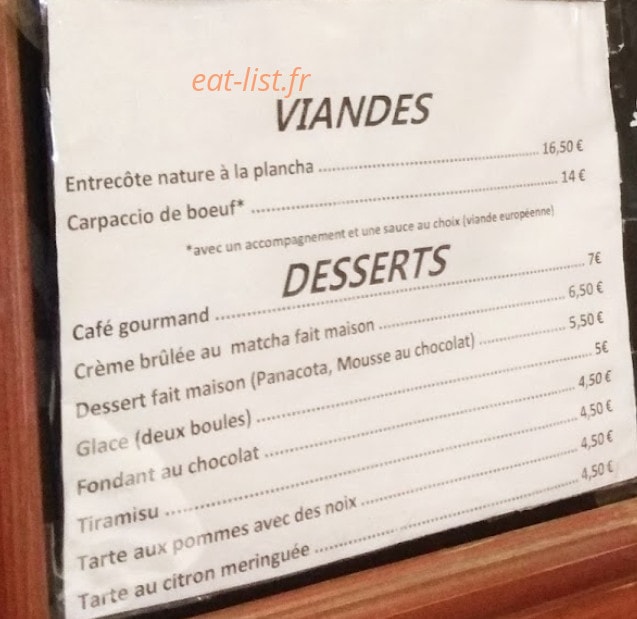 eat-list.fr
VIANDES
Entrecôte nature à la plancha ........ 16,50 €
Carpaccio de boeuf* ........ 14 €
*avec un accompagnement et une sauce au choix (viande européenne)
DESSERTS
Café gourmand ........ 7€
Crème brûlée au matcha fait maison ........ 6,50 €
Dessert fait maison (Panacota, Mousse au chocolat) ........ 5,50 €
Glace (deux boules) ........ 5€
Fondant au chocolat ........ 4,50 €
Tiramisu ........ 4,50 €
Tarte aux pommes avec des noix ........ 4,50 €
Tarte au citron meringuée ........ 4,50 €